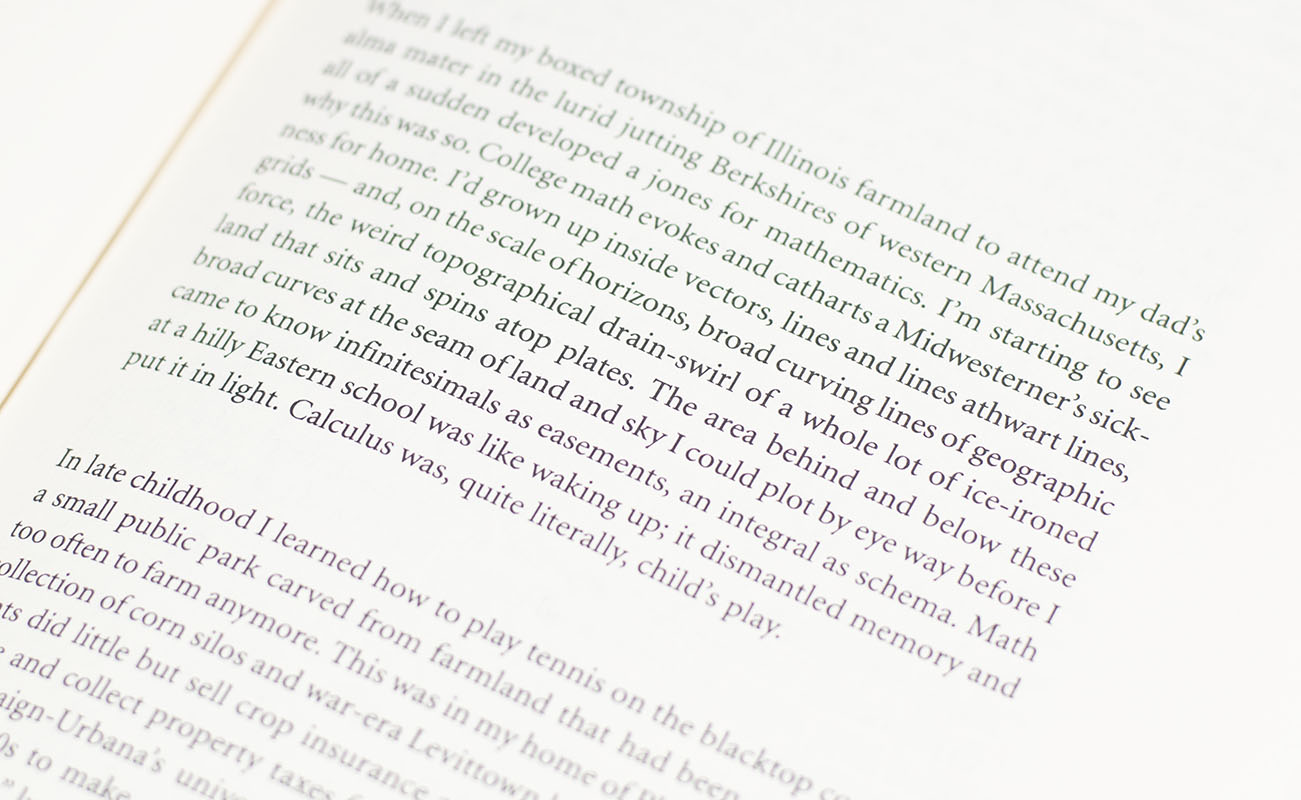 When I left my boxed township of Illinois farmland to attend my dad's
alma mater in the lurid jutting Berkshires of western Massachusetts, I
all of a sudden developed a jones for mathematics. I'm starting to see
why this was so. College math evokes and catharts a Midwesterner's sick-
ness for home. I'd grown up inside vectors, lines and lines athwart lines,
grids — and, on the scale of horizons, broad curving lines of geographic
force, the weird topographical drain-swirl of a whole lot of ice-ironed
land that sits and spins atop plates. The area behind and below these
broad curves at the seam of land and sky I could plot by eye way before I
came to know infinitesimals as easements, an integral as schema. Math
at a hilly Eastern school was like waking up; it dismantled memory and
put it in light. Calculus was, quite literally, child's play.
In late childhood I learned how to play tennis on the blacktop
a small public park carved from farmland that had been
too often to farm anymore. This was in my home of
collection of corn silos and war-era Levittown
did little but sell crop insurance
and collect property taxes
aign-Urbana's
to make